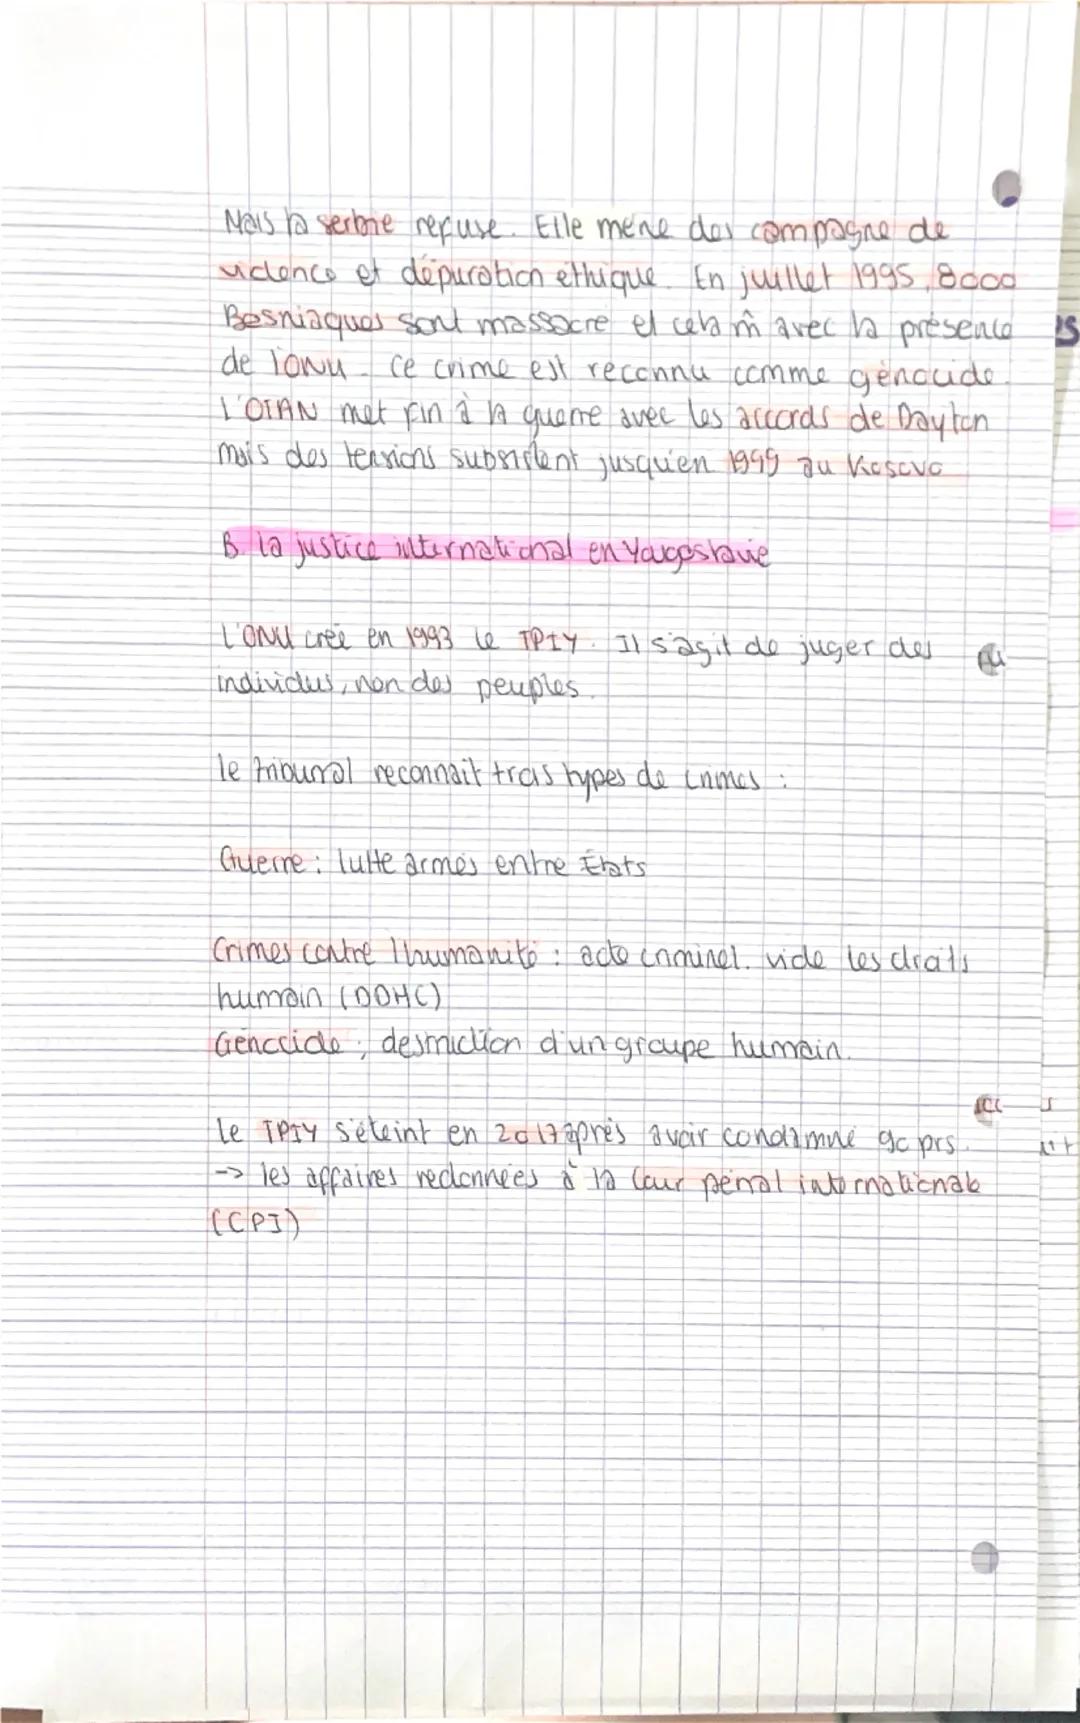 Mais la serbie refuse. Elle mène des campagne de
violence et d'épuration ethique. En juillet 1995, 8000
Bosniaques sont massacre et cela m̂ avec la présence
de l'ONU. Ce crime est reconnu comme génocide.
L'OTAN met fin à la guerre avec les accords de Dayton
mais des tensions subsistent jusqu'en 1999 au Kosovo
B. la justice international en Yougoslavie
L'ONU crée en 1993 le TPIY. Il s'agit de juger des
individus, non des peuples.
le tribunal reconnait trois types de crimes :
Guerre : lutte armés entre États
Crimes contre l'humanité : acte criminel. viole les droits
humain (DDHC)
Génocide : destruction d'un groupe humain.
Le TPIY s'éteint en 2017 après avoir condamné 90 prs.
-> les affaires redonnées à la Cour pénal internationale
(CPI)